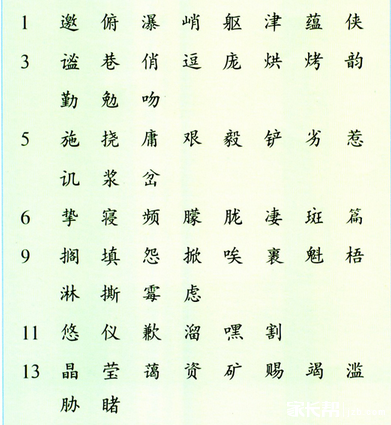 1 邀 俯 瀑 峭 躯 津 蕴 侠
3 谧 巷 俏 逗 庞 烘 烤 韵
勤 勉 吻
5 施 挠 庸 艰 毅 铲 劣 惹
讥 浆 岔
6 挚 寝 频 朦 胧 凄 斑 篇
9 搁 填 怨 掀 唉 裹 魁 梧
淋 撕 霉 虑
11 悠 仪 歉 溜 嘿 割
13 晶 莹 蔼 资 矿 赐 竭 滥
胁 睹